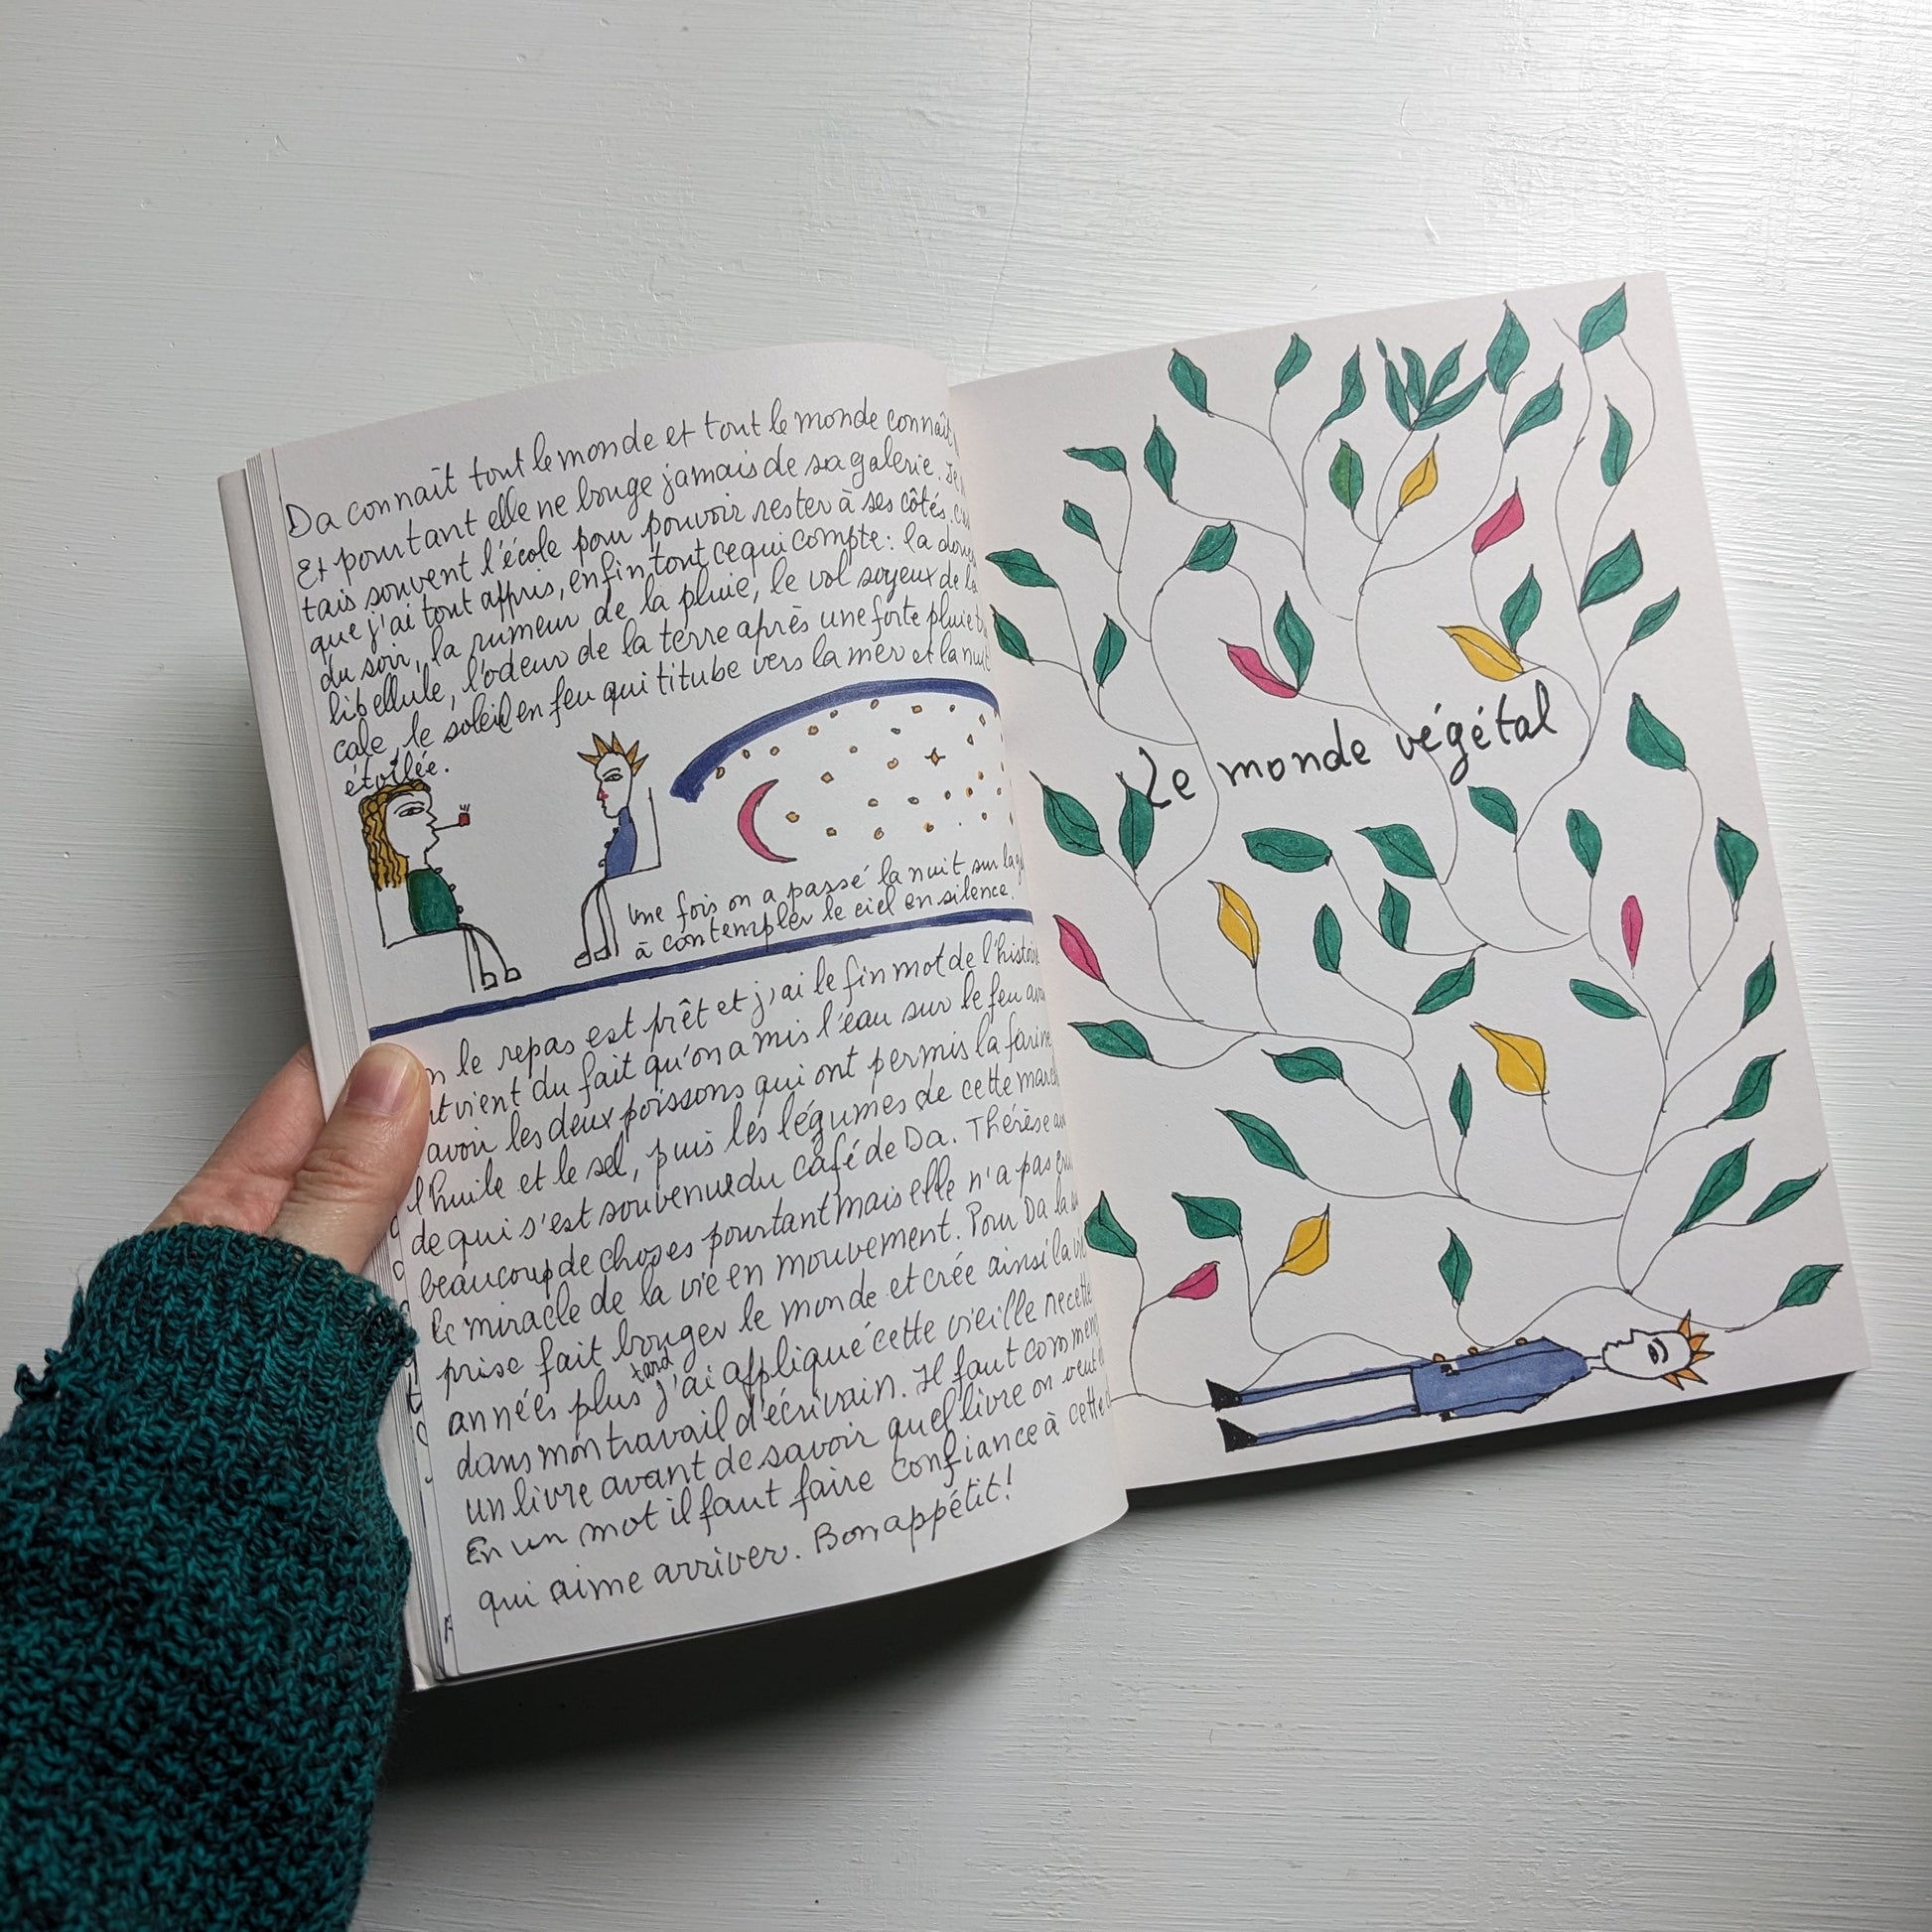 Da connaît tout le monde et tout le monde connaît
Et pourtant elle ne bouge jamais de sa galerie. Je
tais souvent l'école pour pouvoir rester à ses côtés.
que j'ai tout appris, enfin tout ce qui compte: la
du soir, la rumeur de la pluie, le vol soyeux de la
libellule, l'odeur de la terre après une forte pluie
cale, le soleil en feu qui titube vers la mer et la nuit
étoilée.
Une fois on a passé la nuit sur la
à contempler le ciel en silence.
le repas est prêt et j'ai le fin mot de l'histoire
vient du fait qu'on a mis l'eau sur le feu
avoir les deux poissons qui ont permis la farine
l'huile et le sel, puis les légumes de cette
de qui s'est souvenue du café de Da. Thérèse
beaucoup de choses pourtant mais elle n'a pas
le miracle de la vie en mouvement. Pour Da la
prise fait bouger le monde et crée ainsi la
années plus tard j'ai appliqué cette vieille recette
dans mon travail d'écrivain. Il faut
un livre avant de savoir quel livre on veut
En un mot il faut faire confiance à cette
qui aime arriver. Bon appétit!
Le monde végétal